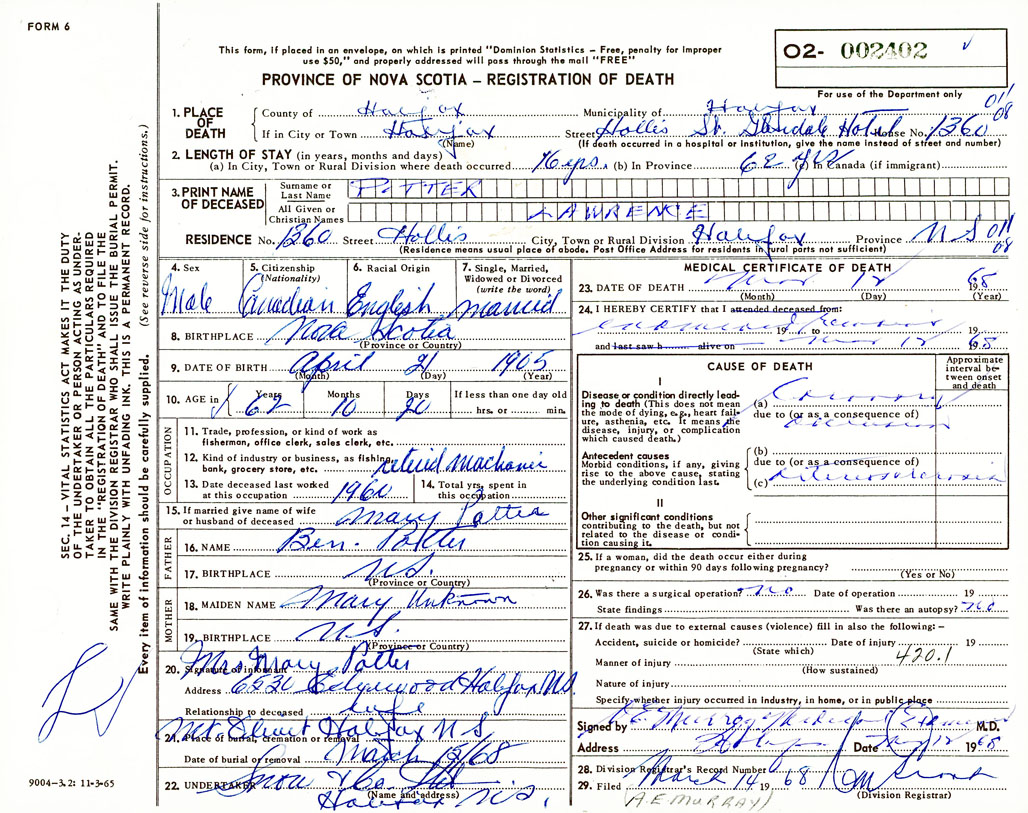 FORM 6
This form, if placed in an envelope, on which is printed "Dominion Statistics – Free, penalty for improper
use $50," and properly addressed will pass through the mail "FREE"
PROVINCE OF NOVA SCOTIA – REGISTRATION OF DEATH
O2- 002402
For use of the Department only
011
08
1. PLACE OF DEATH
County of Halifax Municipality of Halifax
If in City or Town Halifax Street Hollis St. Glendale Hotel House No. 1360
(Name) (If death occurred in a hospital or institution, give the name instead of street and number)
2. LENGTH OF STAY (in years, months and days)
(a) In City, Town or Rural Division where death occurred yrs. (b) In Province 62 yrs (c) In Canada (if immigrant)
3. PRINT NAME OF DECEASED
Surname or Last Name POTTER
All Given or Christian Names LAWRENCE
RESIDENCE No. 1360 Street Hollis City, Town or Rural Division Halifax Province N S 011
08
(Residence means usual place of abode. Post Office Address for residents in rural ports not sufficient)
4. Sex Male
5. Citizenship (Nationality) Canadian
6. Racial Origin English
7. Single, Married, Widowed or Divorced (write the word) married
8. BIRTHPLACE Nova Scotia
(Province or Country)
9. DATE OF BIRTH April 21 1905
(Month) (Day) (Year)
10. AGE in Years 62 Months 10 Days 20 If less than one day old
hrs. or min.
OCCUPATION
11. Trade, profession, or kind of work as
fisherman, office clerk, sales clerk, etc.
12. Kind of industry or business, as fishing,
bank, grocery store, etc. retired machanic
13. Date deceased last worked
at this occupation 1960
14. Total yrs. spent in
this occupation
15. If married give name of wife
or husband of deceased Mary Potter
FATHER
16. NAME Ben. Potter
17. BIRTHPLACE N.S.
(Province or Country)
MOTHER
18. MAIDEN NAME Mary Unknown
19. BIRTHPLACE N.S.
(Province or Country)
20. Signature of informant Mrs Mary Potter
Address 6530 Edgewood Halifax N.S.
Relationship to deceased wife
21. Place of burial, cremation or removal Halifax N S
Date of burial or removal March /68
22. UNDERTAKER Snow & Co.
(Name and address)
Halifax N.S.
MEDICAL CERTIFICATE OF DEATH
23. DATE OF DEATH Mar 12 1968
(Month) (Day) (Year)
24. I HEREBY CERTIFY that I attended deceased from:
19 to 19
and last saw h alive on Mar 12 1968
CAUSE OF DEATH
Approximate interval between onset and death
I
Disease or condition directly leading to death (This does not mean the mode of dying, e.g., heart failure, asthenia, etc. It means the disease, injury, or complication which caused death.)
(a) Coronary
due to (or as a consequence of)
occlusion
Antecedent causes
Morbid conditions, if any, giving rise to the above cause, stating the underlying condition last.
(b)
due to (or as a consequence of)
(c) Arteriosclerosis
II
Other significant conditions
contributing to the death, but not related to the disease or condition causing it.
25. If a woman, did the death occur either during
pregnancy or within 90 days following pregnancy?
(Yes or No)
26. Was there a surgical operation? no Date of operation 19
State findings Was there an autopsy? no
27. If death was due to external causes (violence) fill in also the following:–
Accident, suicide or homicide? Date of injury 19
(State which) 420.1
Manner of injury
(How sustained)
Nature of injury
Specify whether injury occurred in industry, in home, or in public place
Signed by A E Murray Medical Examiner M.D.
Address Halifax Date Mar 12 1968
28. Division Registrar's Record Number
29. Filed March 14 19 68
(Division Registrar)
(A.E. MURRAY)
SEC. 14 – VITAL STATISTICS ACT MAKES IT THE DUTY
OF THE UNDERTAKER OR PERSON ACTING AS UNDER-
TAKER TO OBTAIN ALL THE PARTICULARS REQUIRED
IN THE "REGISTRATION OF DEATH" AND TO FILE THE
SAME WITH THE DIVISION REGISTRAR WHO SHALL ISSUE THE BURIAL PERMIT.
WRITE PLAINLY WITH UNFADING INK. THIS IS A PERMANENT RECORD.
Every item of information should be carefully supplied. (See reverse side for instructions.)
9004–3.2: 11-3-65